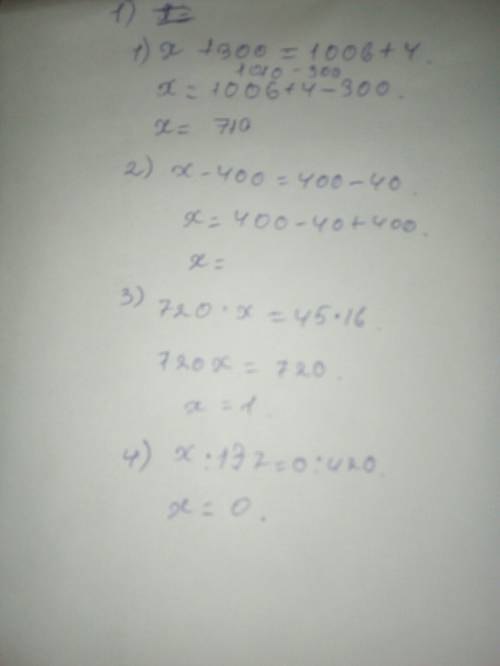 1)
1) x + 300 = 1006 + 4.
1010 - 300
x = 1006 + 4 - 300.
x = 710
2) x - 400 = 400 - 40.
x = 400 - 40 + 400.
x =
3) 720 · x = 45 · 16.
720x = 720.
x = 1.
4) x : 132 = 0 : 420.
x = 0.